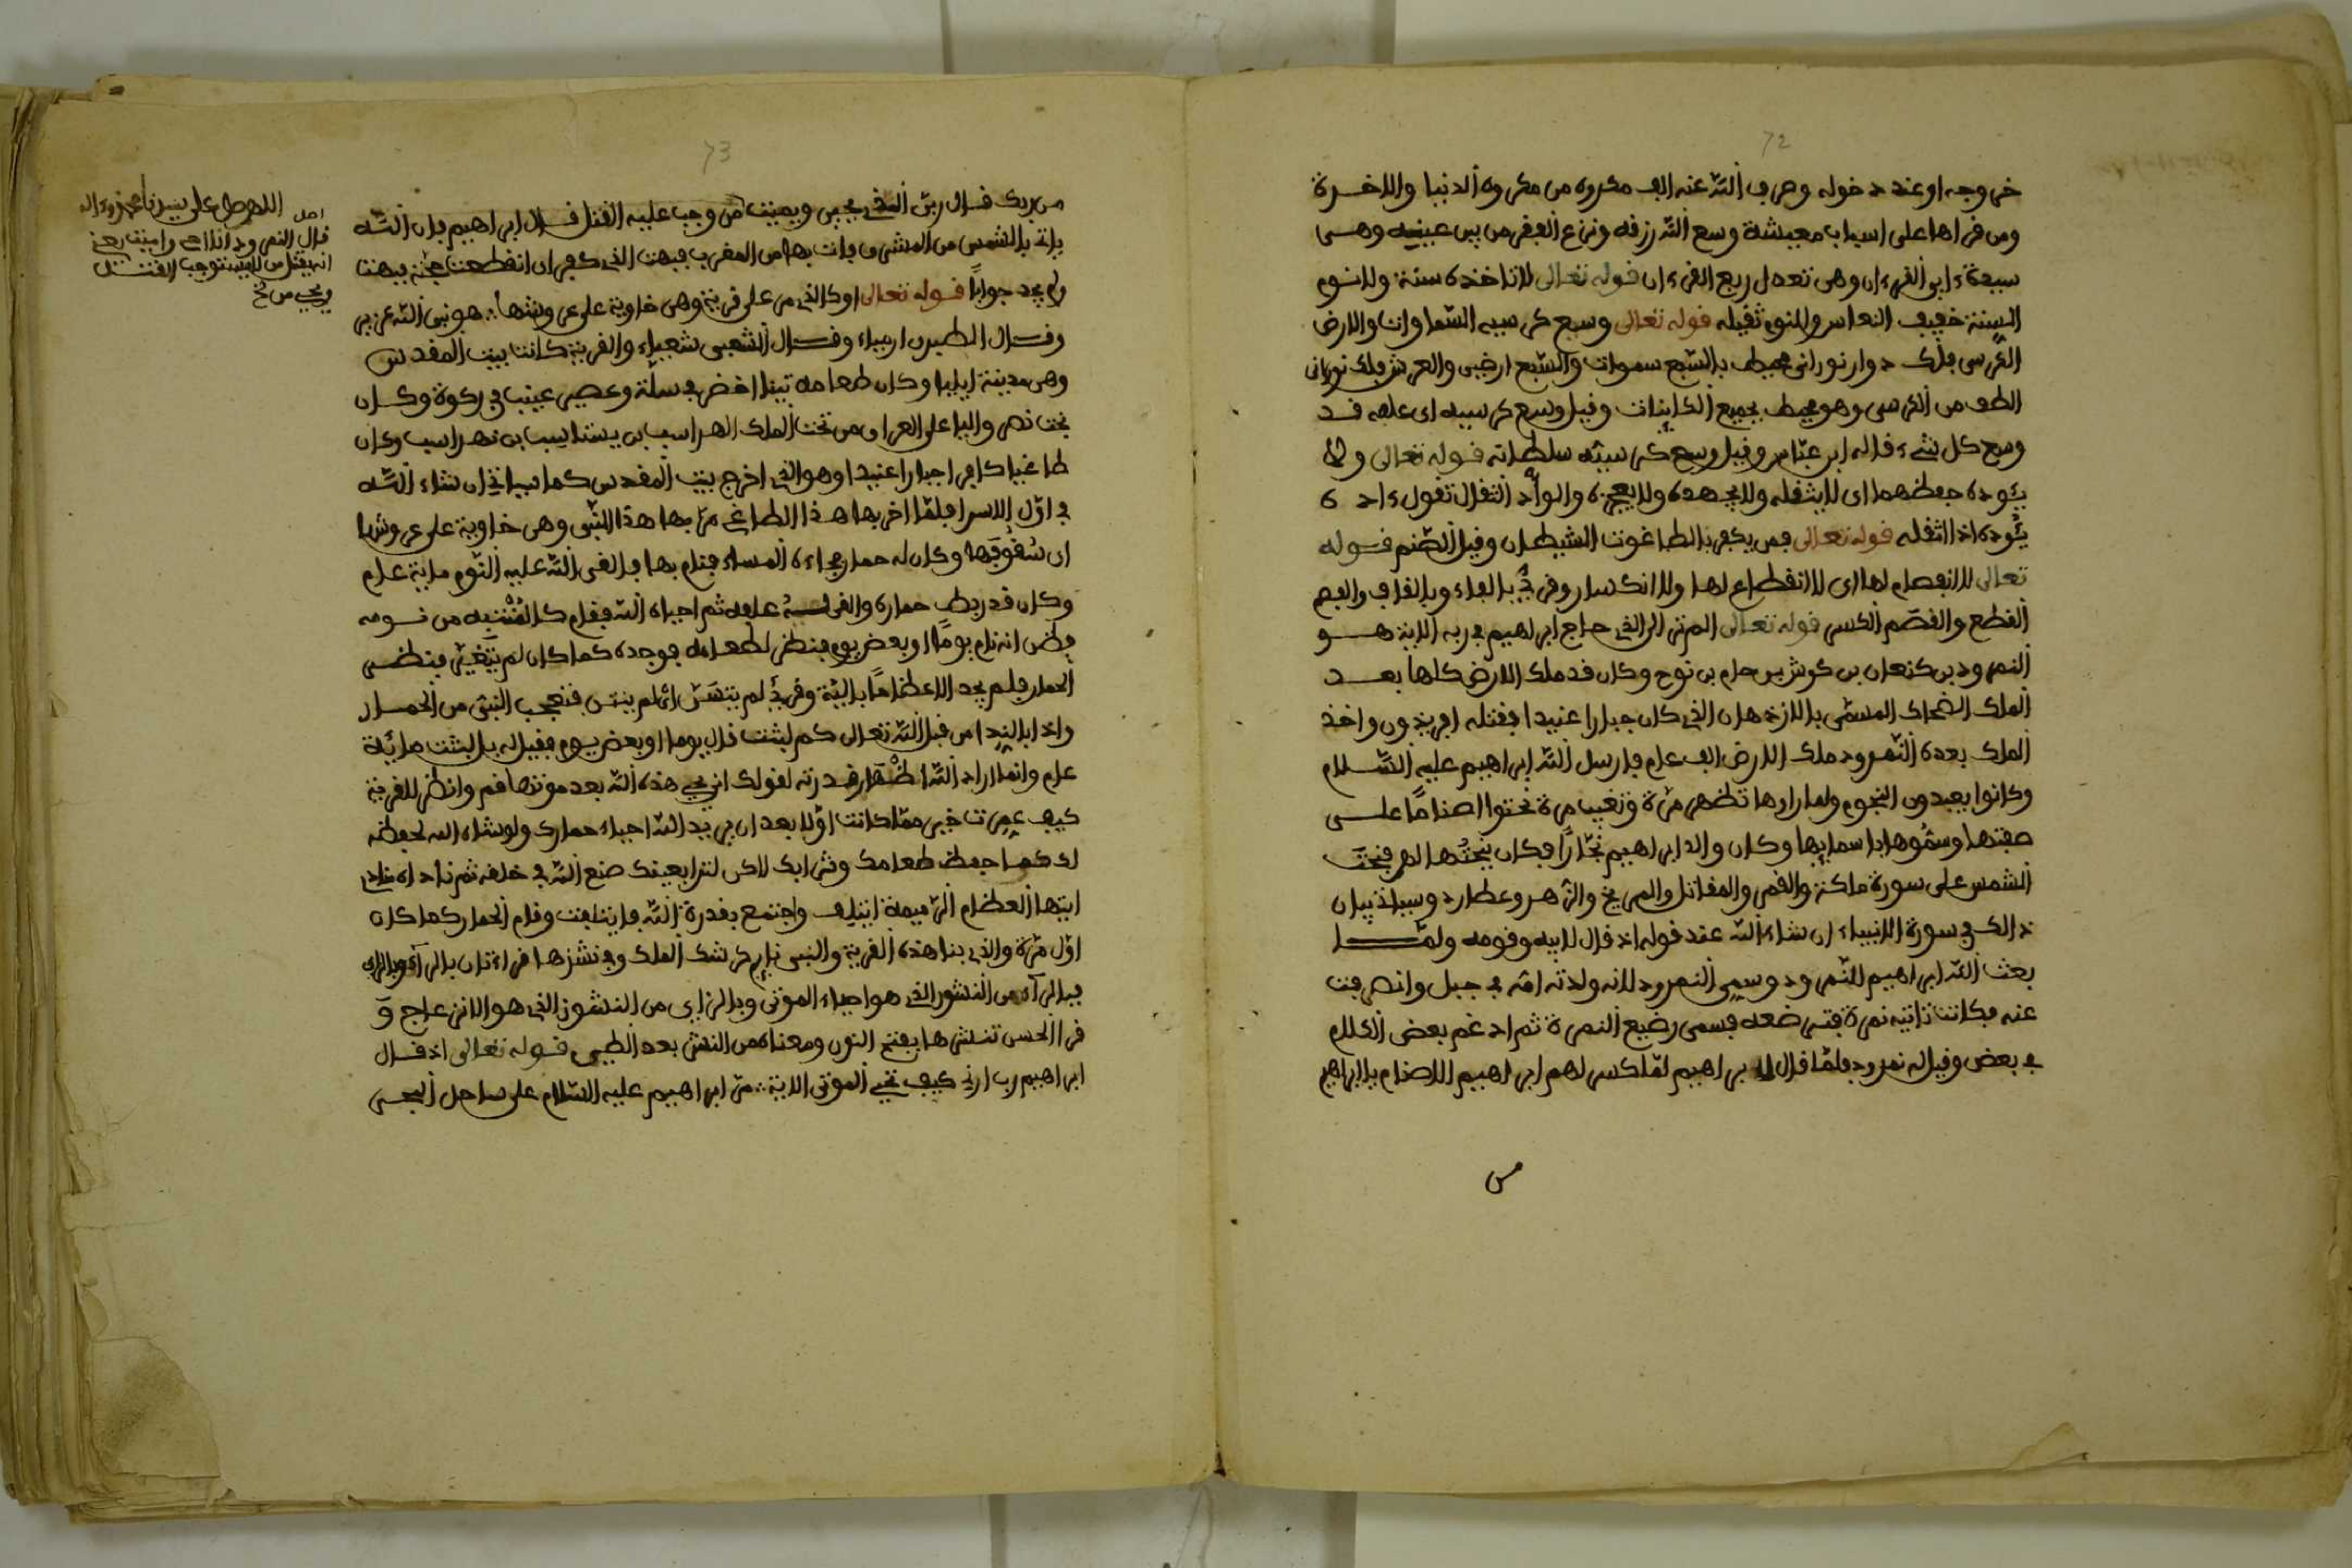 72
خروجه او عند دخوله وصرف الله عنه الف مكروه من مكروه الدنيا والاخرة
ومن قراها على اسباب معيشة وسع الله رزقه ونزع الفقر من بين عينيه وهي
سيدة ءاي القرءان وهي تعدل ربع القرءان قوله تعالى لا تاخذه سنة ولا نوم
السنة خفيف النعاس والنوم ثقيله قوله تعالى وسع كرسيه السماوات والارض
الكرسي فلك دوار نوراني محيط بالسبع سموات والسبع ارضين والعرش فلك نوراني
الطف من الكرسي وهو محيط بجميع الكاينات وقيل وسع كرسيه اي علمه قد
وسع كل شيء قاله ابن عباس وقيل وسع كرسيه سلطانه قوله تعالى ولا
يئوده حفظهما اي لا يثقله ولا يجهده ولا يعجزه والوأد الثقال تقول ءاده
يئوده اذا اثقله قوله تعالى فمن يكفر بالطاغوت الشيطان وقيل الصنم قوله
تعالى لا انفصام لها اي لا انقطاع لها ولا انكسار وقرئ بالفاء وبالقاف والفصم
القطع والقصم الكسر قوله تعالى الم تر الى الذي حاج ابراهيم في ربه الاية هو
النمرود بن كنعان بن كوش بن حام بن نوح وكان قد ملك الارض كلها بعد
الملك الضحاك المسمى بالازدهان الذي كان جبارا عنيدا فقتله افريذون واخذ
الملك بعده النمرود ملك الارض الف عام فارسل الله ابراهيم عليه السلام
وكانوا يعبدون النجوم ولما راوها تظهر مرة وتغيب مرة نحتوا اصناما على
صفتها وسموها باسمايها وكان والد ابراهيم نجارا فكان ينحتها لهم فنحت
الشمس على سورة ملكة والقمر والمقاتل والمريخ والزهر وعطارد وسياتي بيان
ذالك في سورة الانبياء ان شاء الله عند قوله اذ قال لابيه وقومه ولما
بعث الله ابراهيم للنمرود وسمي النمرود لانه ولدته امه في جبل وانصرفت
عنه فكانت تاتيه نمرة فترضعه فسمي رضيع النمرة ثم ادغم بعض الكلام
في بعض وقيل له نمرود فلما قال لابراهيم لما كسر لهم ابراهيم الاصنام يا ابراهيم
من
73
من ربك قال ربي الذي يحيي ويميت من وجب عليه القتل قال ابراهيم فان الله
ياتي بالشمس من المشرق فات بها من المغرب فبهت الذي كفر اي انقطعت حجته فبهت
ولم يجد جوابا قوله تعالى او كالذي مر على قرية وهي خاوية على عروشها هو نبي الله عزير
وقال الطبري ارمياء وقال الشعبي شعيياء والقرية كانت بيت المقدس
وهي مدينة ايليا وكان طعامه تينا اخضر في سلة وعصير عينب في ركوة وكان
بخت نصر واليا على العراق من تحت الملك لهراسب بن يستاسب بن نهراسب وكان
طاغيا كافرا جبارا عنيدا وهو الذي اخرج بيت المقدس كما سياتي ان شاء الله
في اول الاسرا فلما اخربها هذا الطاغي مر بها هذا النبي وهي خاوية على عروشها
اي سقوفها وكان له حمار فجاءه المساء فنام بها فالقى الله عليه النوم ماية عام
وكان قد ربط حماره والقى له علفه ثم احياه الله فقام كالمنتبه من نومه
فظن انه نام يوما او بعض يوم فنظر لطعامه فوجده كما كان لم يتغير فنظر
الحمار فلم يجد الا عظاما بالية وقرئ لم يتسن اي لم ينتن فتعجب النبي من الحمار
واذا بالندا من قبل الله تعالى كم لبثت قال يوما او بعض يوم فقيل له بل لبثت ماية
عام وانما اراد الله اظهار قدرته لقولك اني يحيي هذه الله بعد موتها قم وانظر للقرية
كيف عمرت خير مما كانت اولا بعد ان يريد الله احياء حمارك ولو شاء الله لحفظه
لك كما حفظ طعامك وشرابك لاكن لترا بعينك صنع الله في خلقه ثم ناداه مناد
ايتها العظام الرميمة ايتلف واجتمع بقدرة الله فايتلفت وقام الحمار كما كان
اول مرة والذي بنا هذه القرية والنبي نايم كرشك الملك وفي ننشزها قراءتان بالرآء وبالزاي
فبالرآء من النشور الذي هو احياء الموتى وبالزاي من النشوز الذي هو الانزعاج و
قرا الحسن تنشرها بفتح النون ومعناه من النشر بعد الطي قوله تعالى اذ قال
ابراهيم رب ارني كيف تحيي الموتى الاية مر ابراهيم عليه السلام على ساحل البحر
اللهم صل على سيدنا محمد وءاله
اصل
قال النمرود انا احي واميت يعني
انه يقتل من لا يستوجب القتل
ويحيي من